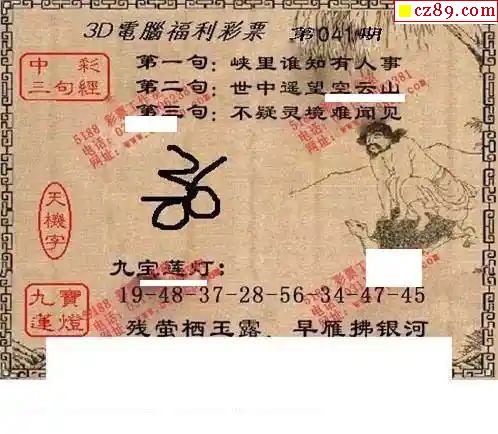 cz89.com
3D電腦福利彩票 第041期
中彩
三句經
第一句：峡里谁知有人事
第二句：世中遥望空云山
第三句：不疑灵境难闻见
天機字
九宝莲灯：
九寶蓮燈
19-48-37-28-56-34-47-45
残萤栖玉露、早雁拂银河